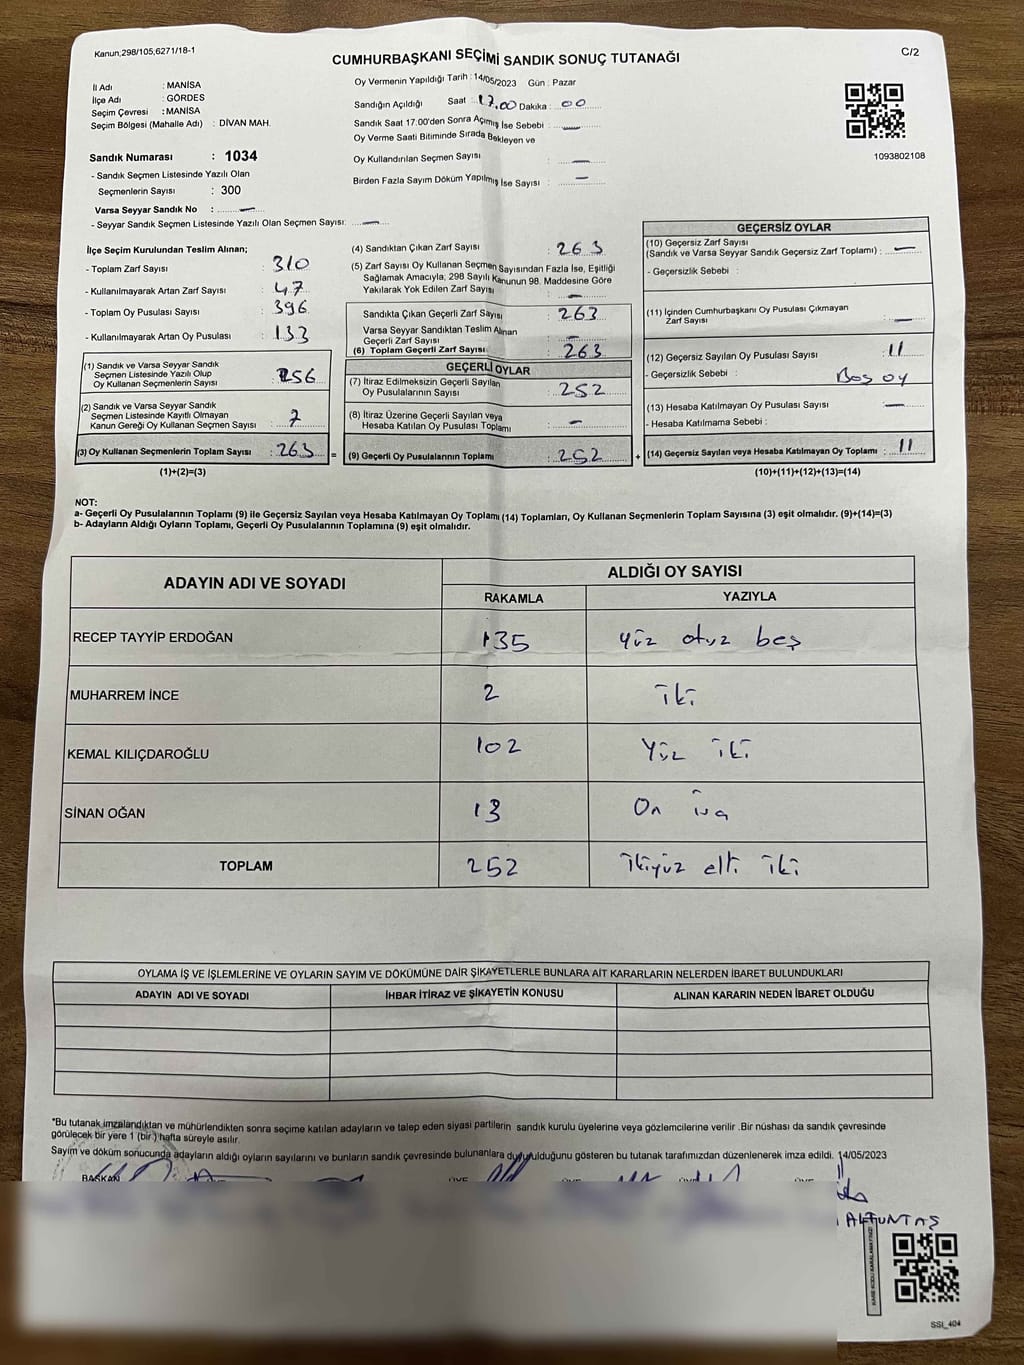 Kanun,298/105,6271/18-1
CUMHURBAŞKANI SEÇİMİ SANDIK SONUÇ TUTANAĞI
C/2
İl Adı : MANİSA
İlçe Adı : GÖRDES
Seçim Çevresi : MANİSA
Seçim Bölgesi (Mahalle Adı) : DİVAN MAH.
Sandık Numarası : 1034
- Sandık Seçmen Listesinde Yazılı Olan
Seçmenlerin Sayısı : 300
Varsa Seyyar Sandık No : —
- Seyyar Sandık Seçmen Listesinde Yazılı Olan Seçmen Sayısı: —
Oy Vermenin Yapıldığı Tarih : 14/05/2023 Gün : Pazar
Sandığın Açıldığı Saat : 17.00 Dakika : 00
Sandık Saat 17.00'den Sonra Açımış İse Sebebi : —
Oy Verme Saati Bitiminde Sırada Bekleyen ve
Oy Kullandırılan Seçmen Sayısı : —
Birden Fazla Sayım Döküm Yapılmış İse Sayısı : —
1093802108
İlçe Seçim Kurulundan Teslim Alınan;
- Toplam Zarf Sayısı : 310
- Kullanılmayarak Artan Zarf Sayısı : 47
- Toplam Oy Pusulası Sayısı : 396
- Kullanılmayarak Artan Oy Pusulası : 133
(1) Sandık ve Varsa Seyyar Sandık
Seçmen Listesinde Yazılı Olup
Oy Kullanan Seçmenlerin Sayısı : 256
(2) Sandık ve Varsa Seyyar Sandık
Seçmen Listesinde Kayıtlı Olmayan
Kanun Gereği Oy Kullanan Seçmen Sayısı : 7
(3) Oy Kullanan Seçmenlerin Toplam Sayısı : 263 =
(1)+(2)=(3)
(4) Sandıktan Çıkan Zarf Sayısı : 263
(5) Zarf Sayısı Oy Kullanan Seçmen Sayısından Fazla İse, Eşitliği
Sağlamak Amacıyla; 298 Sayılı Kanunun 98. Maddesine Göre
Yakılarak Yok Edilen Zarf Sayısı : —
Sandıkta Çıkan Geçerli Zarf Sayısı : 263
Varsa Seyyar Sandıktan Teslim Alınan
Geçerli Zarf Sayısı : —
(6) Toplam Geçerli Zarf Sayısı : 263
GEÇERLİ OYLAR
(7) İtiraz Edilmeksizin Geçerli Sayılan
Oy Pusulalarının Sayısı : 252
(8) İtiraz Üzerine Geçerli Sayılan veya
Hesaba Katılan Oy Pusulası Toplamı : —
(9) Geçerli Oy Pusulalarının Toplamı : 252 +
GEÇERSİZ OYLAR
(10) Geçersiz Zarf Sayısı
(Sandık ve Varsa Seyyar Sandık Geçersiz Zarf Toplamı) : —
- Geçersizlik Sebebi :
(11) İçinden Cumhurbaşkanı Oy Pusulası Çıkmayan
Zarf Sayısı : —
(12) Geçersiz Sayılan Oy Pusulası Sayısı : 11
- Geçersizlik Sebebi : Boş oy
(13) Hesaba Katılmayan Oy Pusulası Sayısı : —
- Hesaba Katılmama Sebebi :
(14) Geçersiz Sayılan veya Hesaba Katılmayan Oy Toplamı : 11
(10)+(11)+(12)+(13)=(14)
NOT:
a- Geçerli Oy Pusulalarının Toplamı (9) ile Geçersiz Sayılan veya Hesaba Katılmayan Oy Toplamı (14) Toplamları, Oy Kullanan Seçmenlerin Toplam Sayısına (3) eşit olmalıdır. (9)+(14)=(3)
b- Adayların Aldığı Oyların Toplamı, Geçerli Oy Pusulalarının Toplamına (9) eşit olmalıdır.
ADAYIN ADI VE SOYADI ALDIĞI OY SAYISI
RAKAMLA YAZIYLA
RECEP TAYYİP ERDOĞAN 135 Yüz otuz beş
MUHARREM İNCE 2 iki
KEMAL KILIÇDAROĞLU 102 Yüz iki
SİNAN OĞAN 13 On
TOPLAM 252 ikiyüz elli iki
OYLAMA İŞ VE İŞLEMLERİNE VE OYLARIN SAYIM VE DÖKÜMÜNE DAİR ŞİKAYETLERLE BUNLARA AİT KARARLARIN NELERDEN İBARET BULUNDUKLARI
ADAYIN ADI VE SOYADI İHBAR İTİRAZ VE ŞİKAYETİN KONUSU ALINAN KARARIN NEDEN İBARET OLDUĞU
*Bu tutanak imzalandıktan ve mühürlendikten sonra seçime katılan adayların ve talep eden siyasi partilerin sandık kurulu üyelerine veya gözlemcilerine verilir .Bir nüshası da sandık çevresinde
görülecek bir yere 1 (bir ) hafta süreyle asılır.
Sayım ve döküm sonucunda adayların aldığı oyların sayılarını ve bunların sandık çevresinde bulunanlara duyurulduğunu gösteren bu tutanak tarafımızdan düzenlenerek imza edildi. 14/05/2023
BAŞKAN
ALTUNTAŞ
SSI_404